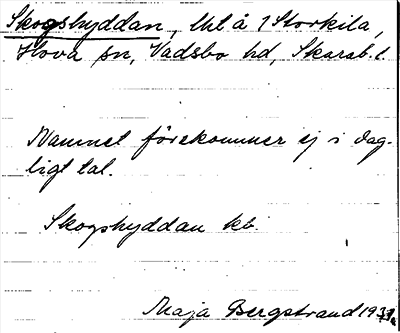 Skogshyddan, lht å 1 Storkila,
Hova sn, Vadsbo hd, Skarab. l.
Namnet förekommer ej i dag-
ligt tal.
Skogshyddan kb.
Maja Bergstrand